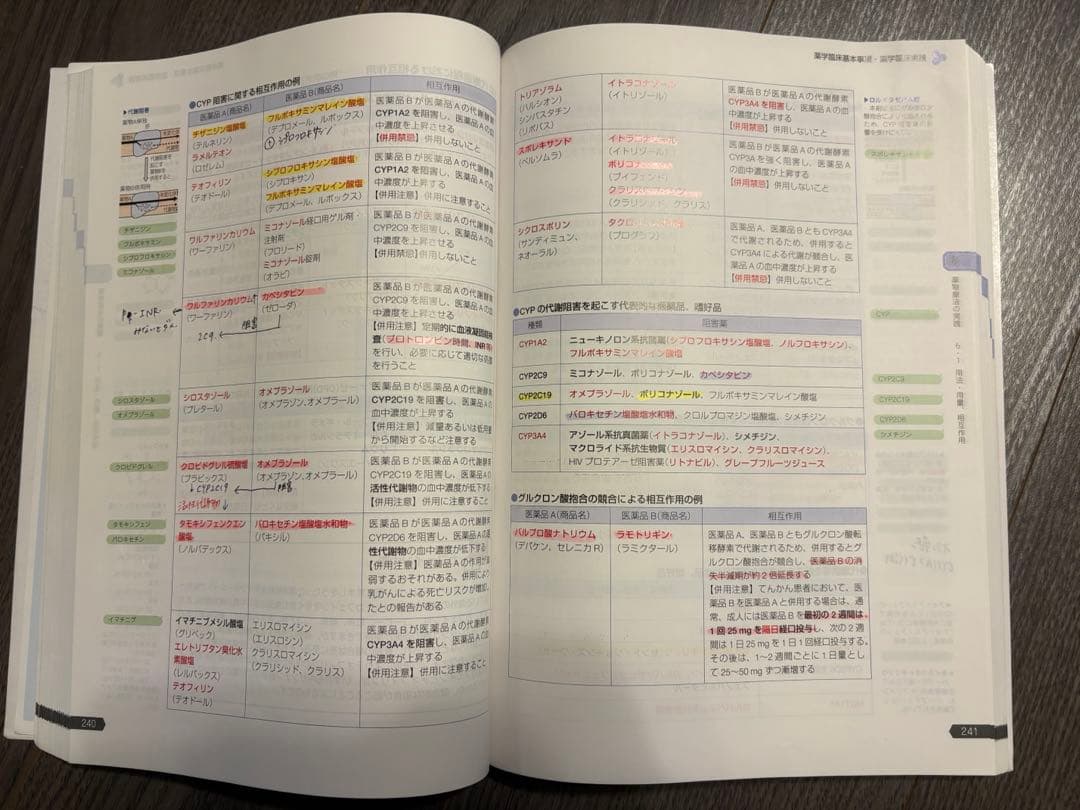 ●CYP 阻害に関する相互作用の例
医薬品A(商品名)
医薬品B(商品名)
相互作用
チザニジン塩酸塩
(テルネリン)
ラメルテオン
(ロゼレム)
フルボキサミンマレイン酸塩
(デプロメール、ルボックス)
医薬品Bが医薬品Aの代謝酵素
CYP1A2を阻害し、医薬品Aの血
中濃度を上昇させる
【併用禁忌】併用しないこと
テオフィリン
(テオドール)
シプロフロキサシン塩酸塩
(シプロキサン)
フルボキサミンマレイン酸塩
(デプロメール、ルボックス)
医薬品Bが医薬品Aの代謝酵素
CYP1A2を阻害し、医薬品Aの血
中濃度が上昇する
【併用注意】併用に注意すること
ワルファリンカリウム
(ワーファリン)
ミコナゾール経口用ゲル剤・
注射剤
(フロリード)
ミコナゾール錠剤
(オラビ)
医薬品Bが医薬品Aの代謝酵素
CYP2C9を阻害し、医薬品Aの血
中濃度を上昇させる
【併用禁忌】併用しないこと
ワルファリンカリウム
(ワーファリン)
カペシタビン
(ゼローダ)
阻害
2C9
医薬品Bが医薬品Aの代謝酵素
CYP2C9を阻害し、医薬品Aの血
中濃度が上昇する
【併用注意】定期的に血液凝固能検
査(プロトロンビン時間、INR等)
を行い、必要に応じて適切な処置
を行うこと
シロスタゾール
(プレタール)
オメプラゾール
(オメプラゾン、オメプラール)
医薬品Bが医薬品Aの代謝酵素
CYP2C19を阻害し、医薬品Aの血
中濃度が上昇する
【併用注意】減量あるいは低用量
から開始するなど注意する
クロピドグレル硫酸塩
(プラビックス)
CYP2C19
活性代謝物↓
オメプラゾール
(オメプラゾン、オメプラール)
阻害
医薬品Bが医薬品Aの代謝酵素
CYP2C19を阻害し、医薬品Aの
活性代謝物の血中濃度が低下する
【併用注意】併用に注意すること
タモキシフェンクエン
酸塩
(ノルバデックス)
パロキセチン塩酸塩水和物
(パキシル)
医薬品Bが医薬品Aの代謝酵素
CYP2D6を阻害し、医薬品Aの活
性代謝物の血中濃度が低下する
【併用注意】医薬品Aの作用が減
弱するおそれがある。併用により
乳がんによる死亡リスクが増加し
たとの報告がある
イマチニブメシル酸塩
(グリベック)
エレトリプタン臭化水
素酸塩
(レルパックス)
テオフィリン
(テオドール)
エリスロマイシン
(エリスロシン)
クラリスロマイシン
(クラリシッド、クラリス)
医薬品Bが医薬品Aの代謝酵素
CYP3A4を阻害し、医薬品Aの血
中濃度が上昇する
【併用注意】併用に注意すること
▶代謝阻害
チザニジン
フルボキサミン
シプロフロキサシン
ミコナゾール
シロスタゾール
オメプラゾール
クロピドグレル
タモキシフェン
パロキセチン
イマチニブ
240
薬学臨床基本事項・薬学臨床実践
トリアゾラム
(ハルシオン)
シンバスタチン
(リポバス)
イトラコナゾール
(イトリゾール)
医薬品Bが医薬品Aの代謝酵素
CYP3A4を阻害し、医薬品Aの血
中濃度が上昇する
【併用禁忌】併用しないこと
スボレキサント
(ベルソムラ)
イトラコナゾール
(イトリゾール)
ボリコナゾール
(ブイフェンド)
クラリスロマイシン
(クラリシッド、クラリス)
医薬品Bが医薬品Aの代謝酵素
CYP3Aを強く阻害し、医薬品A
の血中濃度が上昇する
【併用禁忌】併用しないこと
シクロスポリン
(サンディミュン、
ネオーラル)
タクロリムス水和物
(プログラフ)
医薬品A、医薬品BともCYP3A4
で代謝されるため、併用すると
CYP3A4による代謝が競合し、医
薬品Aの血中濃度が上昇する
【併用禁忌】併用しないこと
●CYP の代謝阻害を起こす代表的な医薬品、嗜好品
種類
阻害薬
CYP1A2
ニューキノロン系抗菌薬(シプロフロキサシン塩酸塩、ノルフロキサシン)、
フルボキサミンマレイン酸塩
CYP2C9
ミコナゾール、ボリコナゾール、カペシタビン
CYP2C19
オメプラゾール、ボリコナゾール、フルボキサミンマレイン酸塩
CYP2D6
パロキセチン塩酸塩水和物、クロルプロマジン塩酸塩、シメチジン
CYP3A4
アゾール系抗真菌薬(イトラコナゾール)、シメチジン、
マクロライド系抗生物質(エリスロマイシン、クラリスロマイシン)、
HIV プロテアーゼ阻害薬(リトナビル)、グレープフルーツジュース
●グルクロン酸抱合の競合による相互作用の例
医薬品A(商品名)
医薬品B(商品名)
相互作用
バルプロ酸ナトリウム
(デパケン、セレニカR)
ラモトリギン
(ラミクタール)
医薬品A、医薬品Bともグルクロン酸転
移酵素で代謝されるため、併用するとグ
ルクロン酸抱合が競合し、医薬品Bの消
失半減期が約2倍延長する
【併用注意】てんかん患者において、医
薬品Bを医薬品Aと併用する場合は、通
常、成人には医薬品Bを最初の2週間は、
1回25mgを隔日経口投与し、次の2週
間は1日25mgを1日1回経口投与する。
その後は、1〜2週間ごとに1日量とし
て25〜50mgずつ漸増する
CYP
CYP2C9
CYP2C19
CYP2D6
シメチジン
薬物療法の実践
6・1 用法・用量、相互作用
241